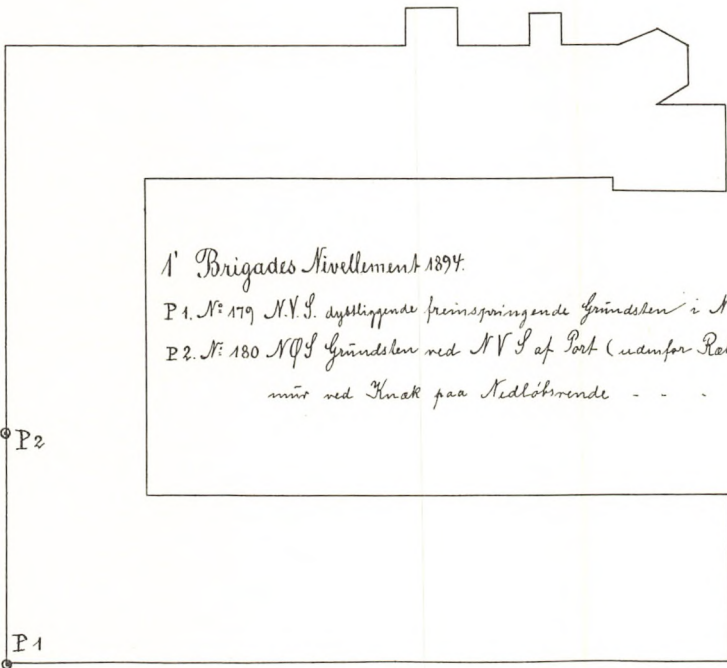 1' Brigades Nivellement 1894.
P 1. Nº 179 N.V.S. dybtliggende fremspringende Grundsten i N
P 2. Nº 180 NØS Grundsten ved NVS af Port (udenfor Ra
mur ved Knæk paa Nedløbsrende - - -
P2
P1